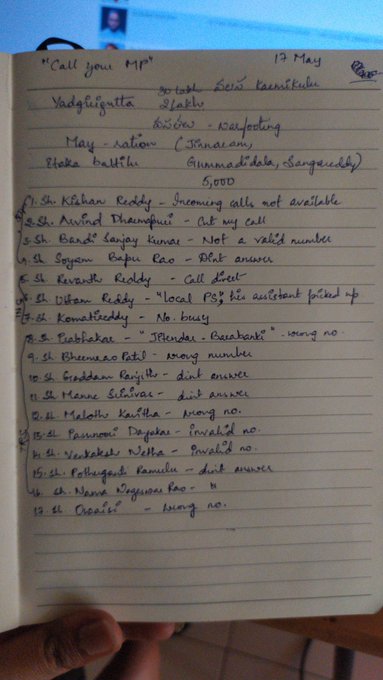 "Call your MP" 17 May
30 Lakh వలస Karmikulu
Yadgirigutta 2 lakh
- Narfooting
May - ration (Jinnaram,
Etaka battilu Gummadidala, Sangareddy)
5,000
1. Sh. Kishan Reddy - Incoming calls not available
2. Sh. Arvind Dharmapuri - Cut my call
3. Sh. Bandi Sanjay Kumar - Not a valid number
4. Sh. Soyam Bapu Rao - Dint answer
5. Sh. Revanth Reddy - Call direct
6. Sh. Uttam Reddy - "local PS", his assistant picked up
7. Sh. Komatireddy - No. busy
8. Sh. Prabhakar - "Jitendar - Barabanki" - wrong no.
9. Sh. Bheemrao Patil - wrong number
10. Sh. Gaddam Ranjith - dint answer
11. Sh. Manne Srinivas - dint answer
12. Sh. Maloth Kavitha - wrong no.
13. Sh. Pasunoori Dayakar - invalid no.
14. Sh. Venkatesh Netha - invalid no.
15. Sh. Pothuganti Ramulu - dint answer
16. Sh. Nama Nageswara Rao - "
17. Sh Owaisi - wrong no.